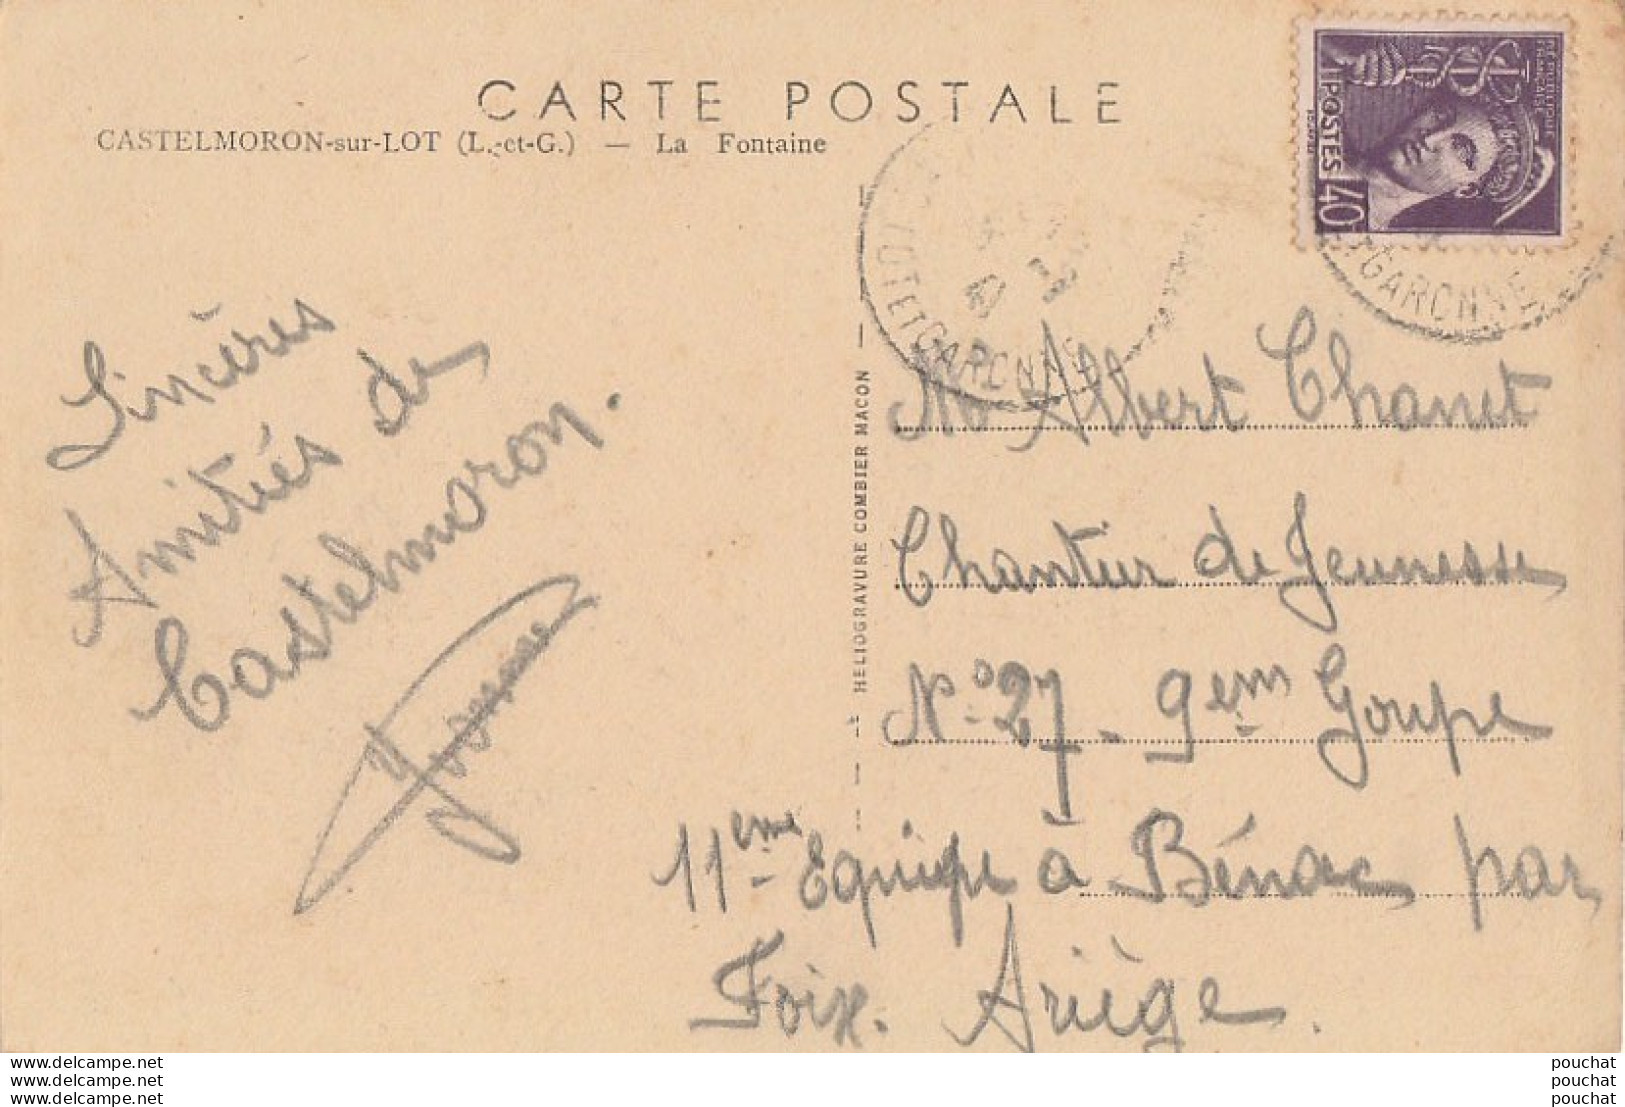 CARTE POSTALE
CASTELMORON-sur-LOT (L.-et-G.) — La Fontaine
REPUBLIQUE
FRANÇAISE
POSTES
40
LOT ET GARONNE
ET GARONNE
Sincères
Amitiés de
Castelmoron.
Yvonne
HELIOGRAVURE COMBIER MACON
Albert Chanet
Chantier de Jeunesse
N° 27 - 9em Goupe
11eme Equipe à Bénac par
Foix. Ariège.
www.delcampe.net
www.delcampe.net
www.delcampe.net
pouchat
pouchat
pouchat